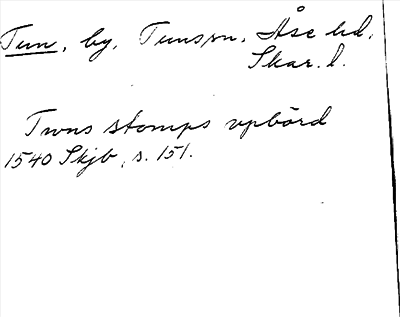 Tun, by, Tuns sn, Åse hd,
Skar. l.
Twns stomps vpbörd
1540 Skjb, s. 151.